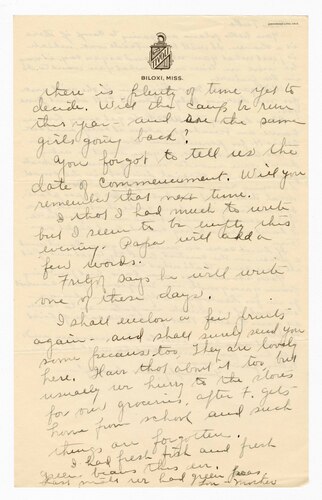 BILOXI, MISS.
there is plenty of time yet to
decide. Will the camp be run
this year - and are the same
girls going back?
You forgot to tell us the
date of commencement. Will you
remember that next time.
I thot I had much to write
but I seem to be empty this
evening. Papa will add a
few words.
says he will write
one of these days.
I shall enclose a few prints
again - and shall surely send you
some pecans too. They are lovely
here. Have thot about it too but
usually we hurry to the stores
for our groceries, after F. gets
home from school and such
things are forgotten.
I had fresh fish and fresh
green beans this eve.
Last nite we had green peas.
Love - Mother